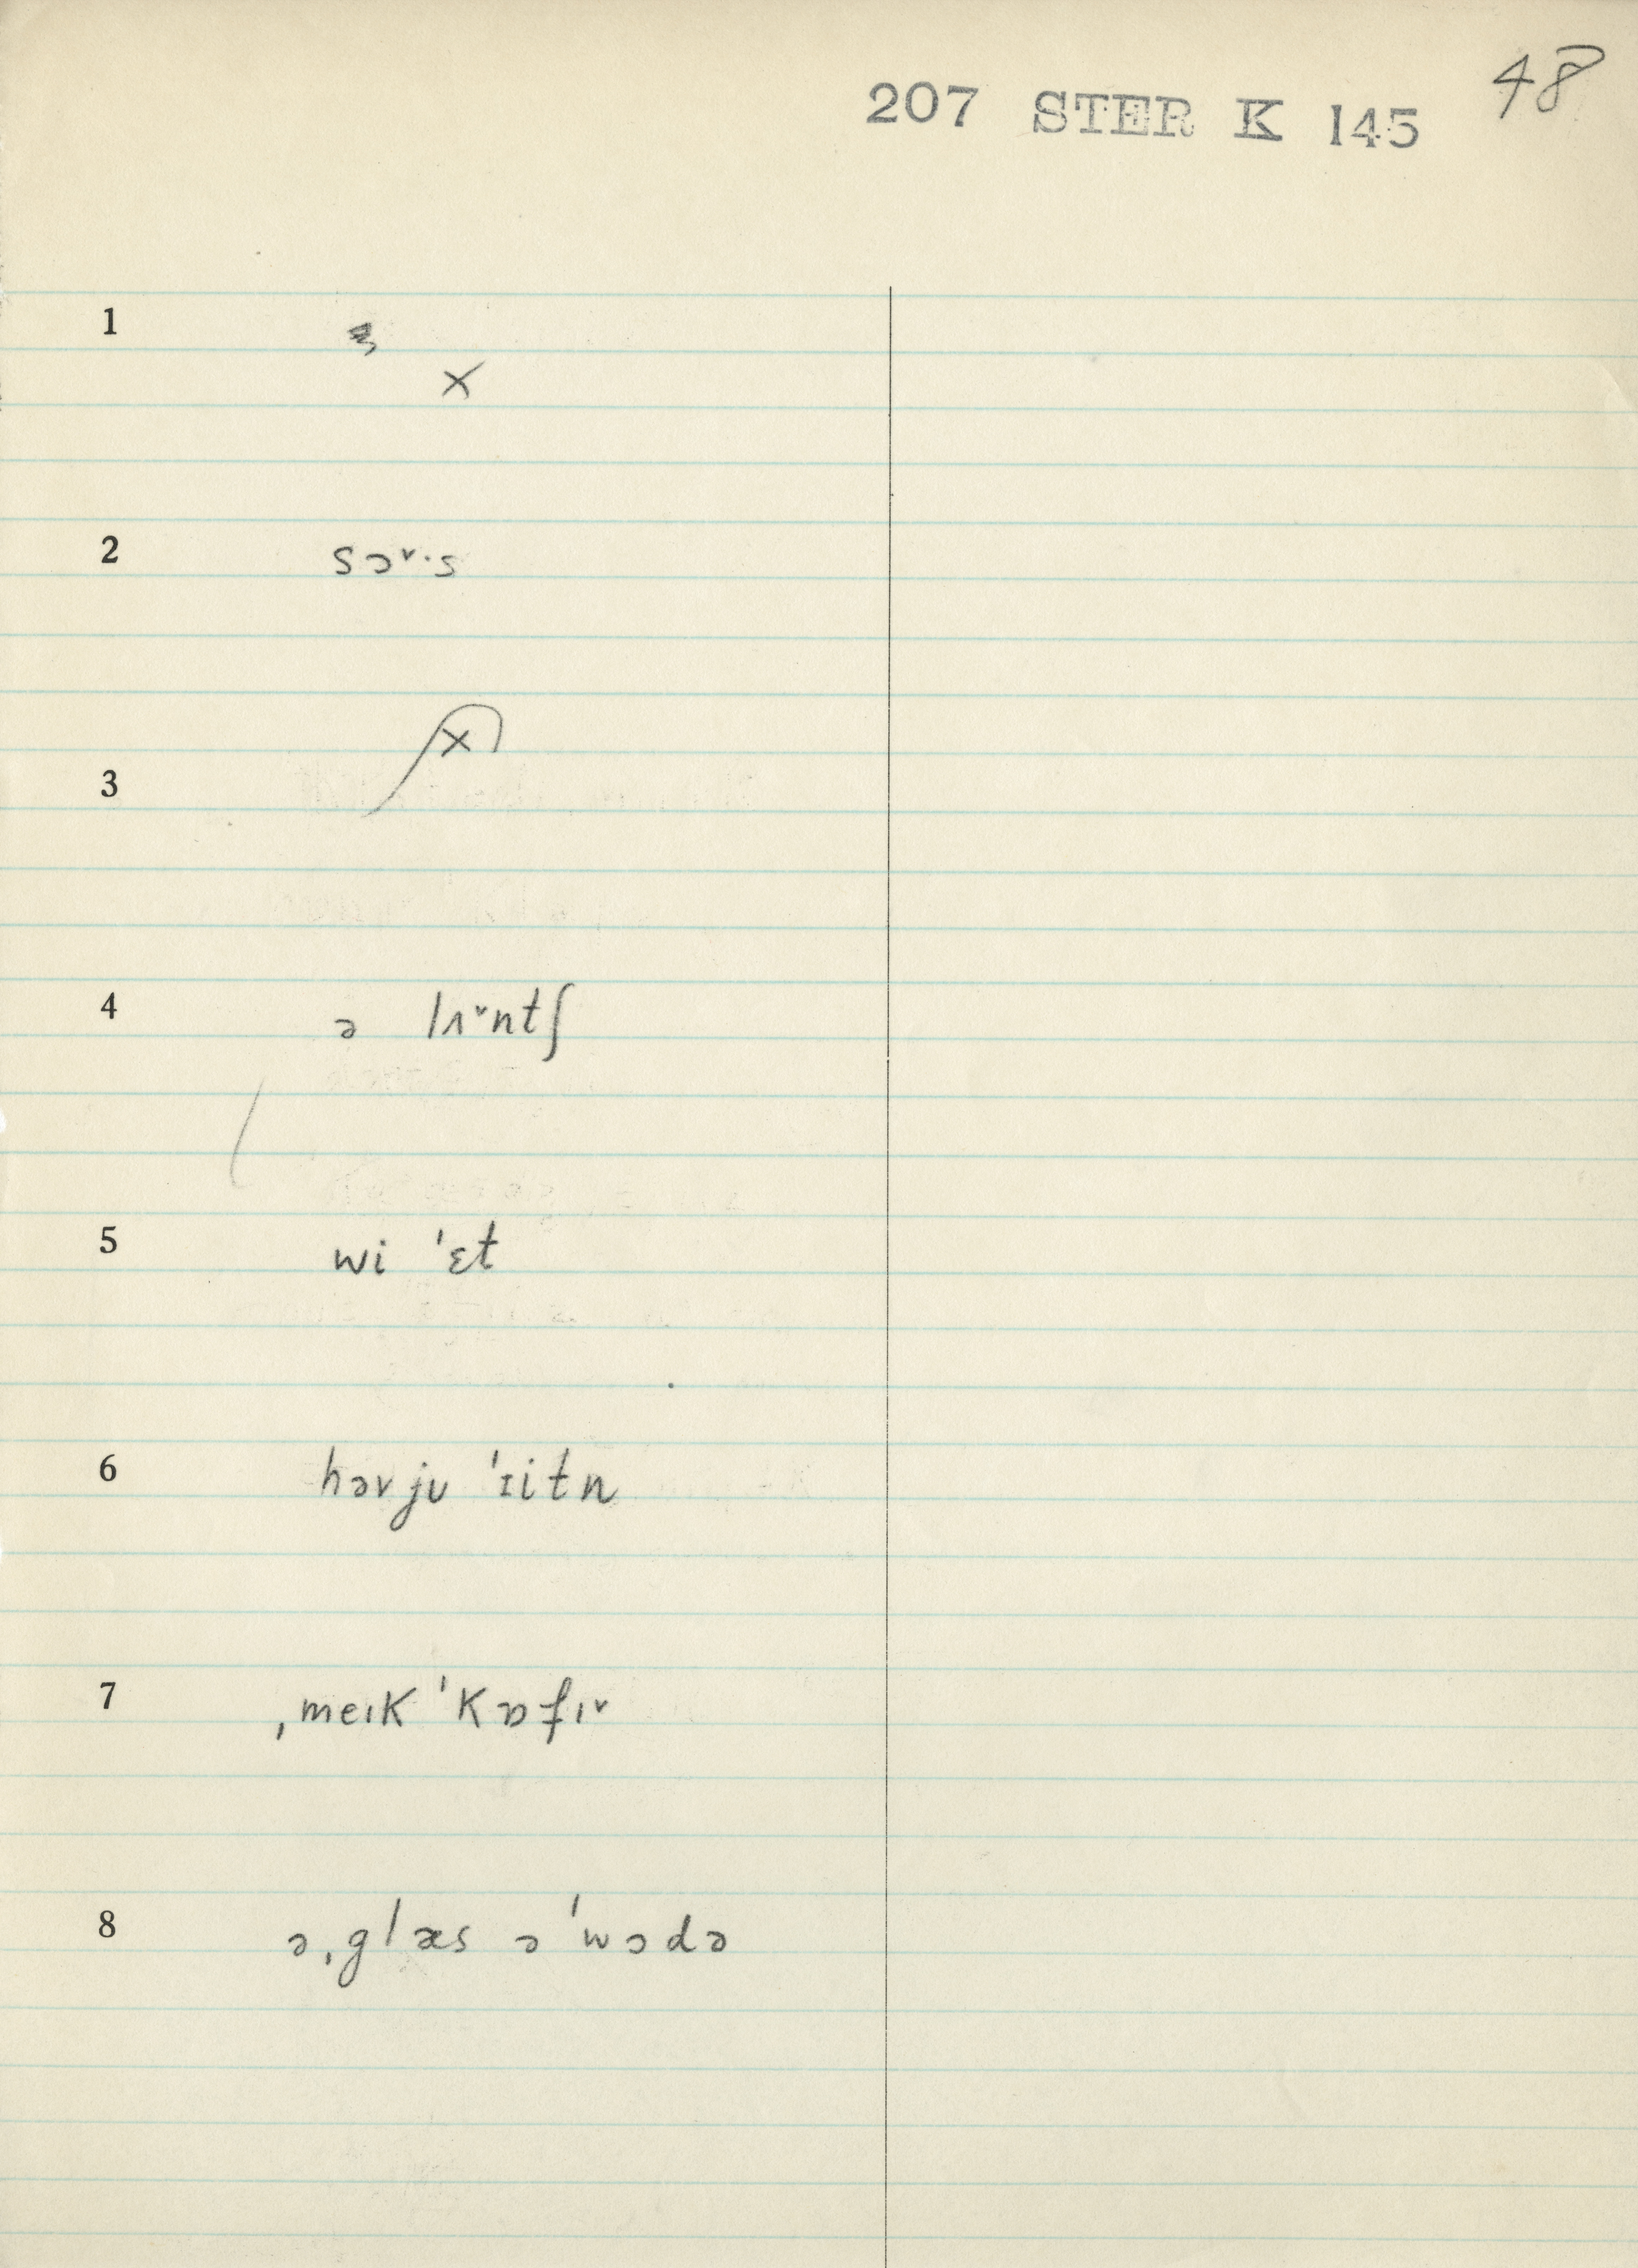 48
207 STER K 145
1
x
2 sɔ˅·s
3 x
4 ə lʌ˅ntʃ
5 wi ˈɛt
6 həv jʊ ˈɪitn
7 ˌmeɪk ˈkɒfɪ˅
8 əˌglæs ə ˈwɔdə